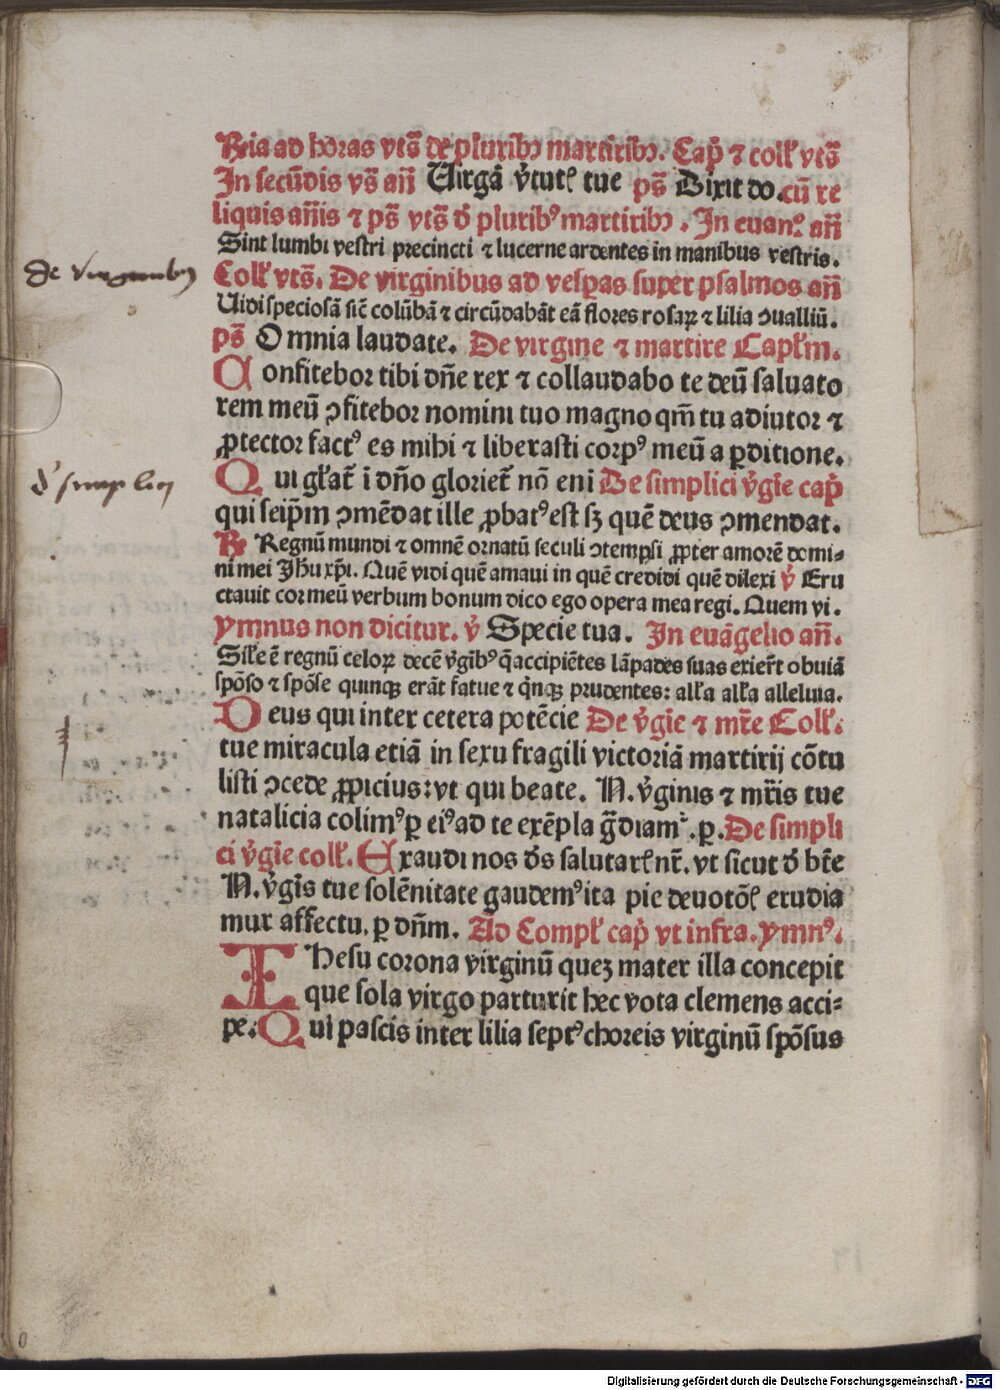 Rꝛia ad hoꝛas vts̃ de pluribꝫ martiribꝫ. Cap̃ ⁊ coll̃ vts̃
In secũdis vs̃ añ Virgã v̓tutꝭ tue ps̃ Dixit do. cũ re
liquis añis ⁊ ps̃ vts̃ d̓ pluribꝰ martiribꝫ. In euan.º añ
Sint lumbi vestri precincti ⁊ lucerne ardentes in manibus vestris.
de virginibꝫ
Coll̃ vts̃. De virginibus ad vesp̱as super psalmos añ
Uidi speciosã sic̃ colũbã ⁊ circũdabãt eã flores rosaꝝ ⁊ lilia ꝯualliũ.
ps̃ Omnia laudate. De virgine ⁊ martire Capl̃m.
Confitebor tibi dñe rex ⁊ collaudabo te deũ saluato
rem meũ ꝯfitebor nomini tuo magno qm̃ tu adiutor ⁊
ꝓtector factꝰ es mihi ⁊ liberasti corpꝰ meũ a ꝑditione.
d̓ simplici
Qui gl̃at̃ ĩ dño gloriet̃ nõ eni De simplici v̓gĩe cap̃
qui seip̃m ꝯmẽdat ille ꝓbatꝰ est sꝫ quẽ deus ꝯmendat.
℟ Regnũ mundi ⁊ omnẽ ornatũ seculi ꝯtempsi ꝓpter amorẽ domi⸗
ni mei Jh̃u xp̃i. Quẽ vidi quẽ amaui in quẽ credidi quẽ dilexi v̓ Eru
ctauit cor meũ verbum bonum dico ego opera mea regi. Quem vi.
ymnus non dicitur. v̓ Specie tua. In euãgelio añ.
Sil̃e ẽ regnũ celoꝝ decẽ v̓gĩbꝰ q̃ accipiẽtes lãpades suas exier̃t obuiã
spõso ⁊ spõse quinqꝫ erãt fatue ⁊ q̃nqꝫ prudentes: all̃a all̃a alleluia.
Deus qui inter cetera potẽcie De v̓gĩe ⁊ mr̃e Coll̃.
tue miracula etiã in sexu fragili victoriã martirij cõtu
listi ꝯcede ꝓpicius: vt qui beate. N. v̓ginis ⁊ mr̃is tue
natalicia colimꝰ ꝑ eiꝰ ad te exẽpla g̃diamᷣ. ꝑ. De simpli
ci v̓gĩe coll̃. Exaudi nos d̃s salutarꝭ nr̃. vt sicut d̓ bt̃e
N. v̓gĩs tue solẽnitate gaudemꝰ ita pie deuotõꝭ erudia
mur affectu. ꝑ dñm. Ad Compl̃ cap̃ vt infra. ymnꝰ.
Jhesu corona virginũ queꝫ mater illa concepit
que sola virgo parturit hec vota clemens acci⸗
pe. Qui pascis inter lilia septꝰ choreis virginũ spõsus
Digitalisierung gefördert durch die Deutsche Forschungsgemeinschaft - DFG